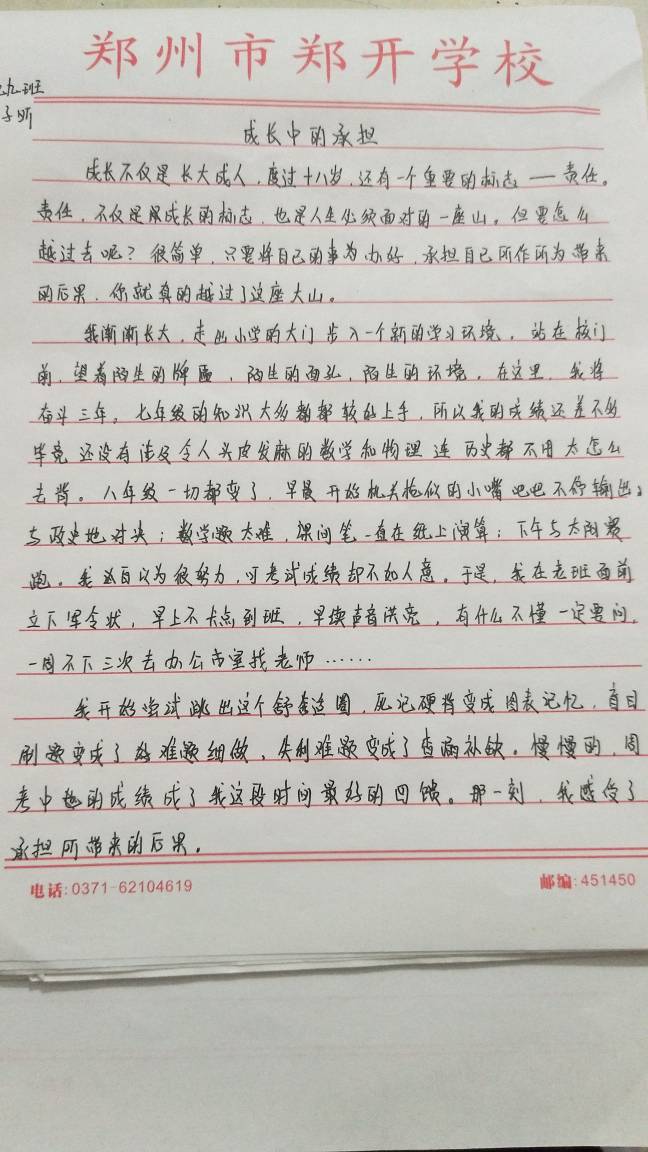 郑州市郑开学校
九班
子昕
成长中的承担
成长不仅是长大成人,度过十八岁,还有一个重要的标志——责任。
责任,不仅是限成长的标志,也是人生必须面对的一座山。但要怎么
越过去呢?很简单,只要将自己的事为办好,承担自己所作所为带来
的后果,你就真的越过了这座大山。
我渐渐长大,走出小学的大门步入一个新的学习环境。站在校门
前,望着陌生的牌匾,陌生的面孔,陌生的环境。在这里,我将
奋斗三年。七年级的知识大多都都较好上手,所以我的成绩还差不多
毕竟还没有涉及令人头皮发麻的数学和物理连历史都不用太怎么
去背。八年级一切都变了,早晨开始机关枪似的小嘴吧吧不停输出
与政史地对决;数学题太难,课间笔一直在纸上演算;下午与太阳赛
跑。我自以为很努力,可考试成绩却不如人意。于是,我在老班面前
立下军令状,早上不卡点到班,早读声音洪亮,有什么不懂一定要问,
一周不下三次去办公室找老师……
我开始尝试跳出这个舒适圈,死记硬背变成图表记忆,盲目
刷题变成了好难题细做,失利难题变成了查漏补缺。慢慢的,周
考中的成绩成了我这段时间最好的回馈。那一刻,我感受了
承担所带来的后果。
电话:0371-62104619
邮编:451450